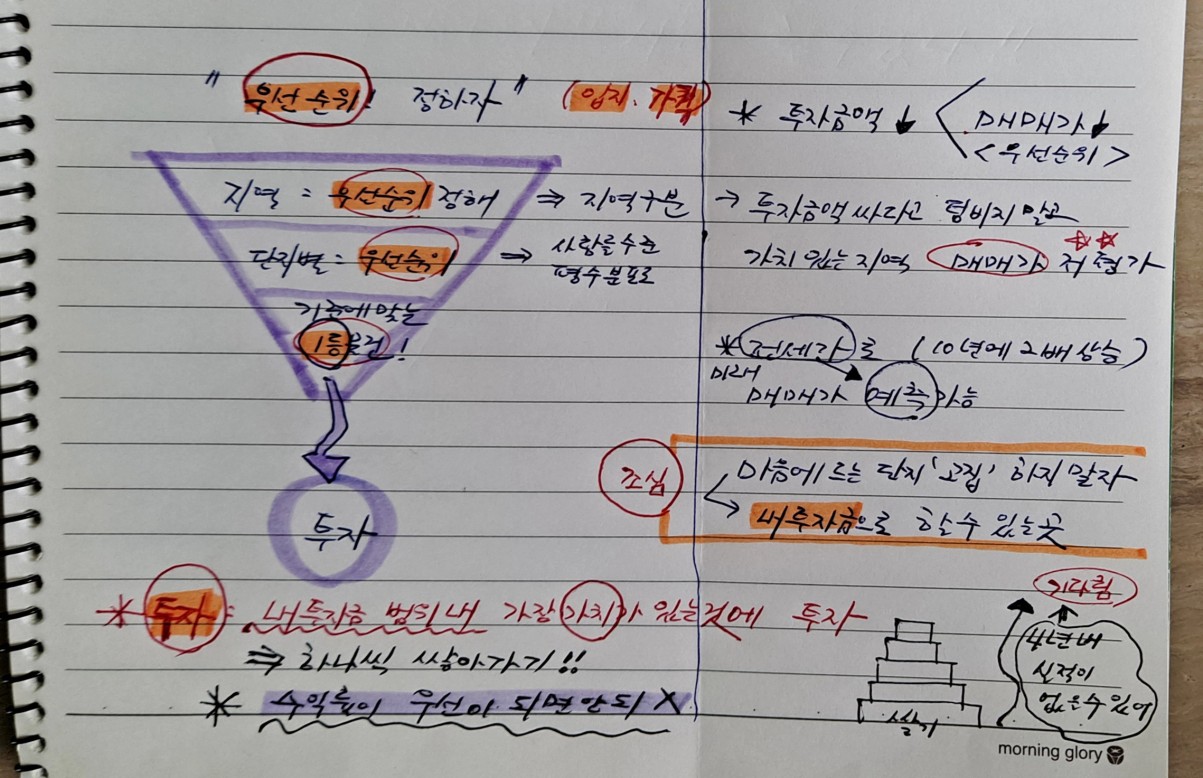 " 우선순위! 정하자 " (입지. 가격)
지역 = 우선순위 정해 ⇒ 지역구분
단지별 = 우선순위 ⇒ 사람들수준
평수분포도
기준에맞는
1등물건!
투자
* 투자금액↓ < 매매가↓
<우선순위>
→ 투자금액싸다고 덤비지말고
가치있는지역 매매가 저평가
*전세가로 (10년에 2배상승)
미래
매매가 예측가능
조심
마음에드는 단지 '고집' 하지말자
→ 내투자금으로 할수 있는곳
* 투자 = 내투자금 범위내 가장 가치가 있는것에 투자
⇒ 하나씩 쌓아가기!!
* 수익률이 우선이 되면안되 X
기다림
4년내
실적이
없을수있어
쌓기
morning glory